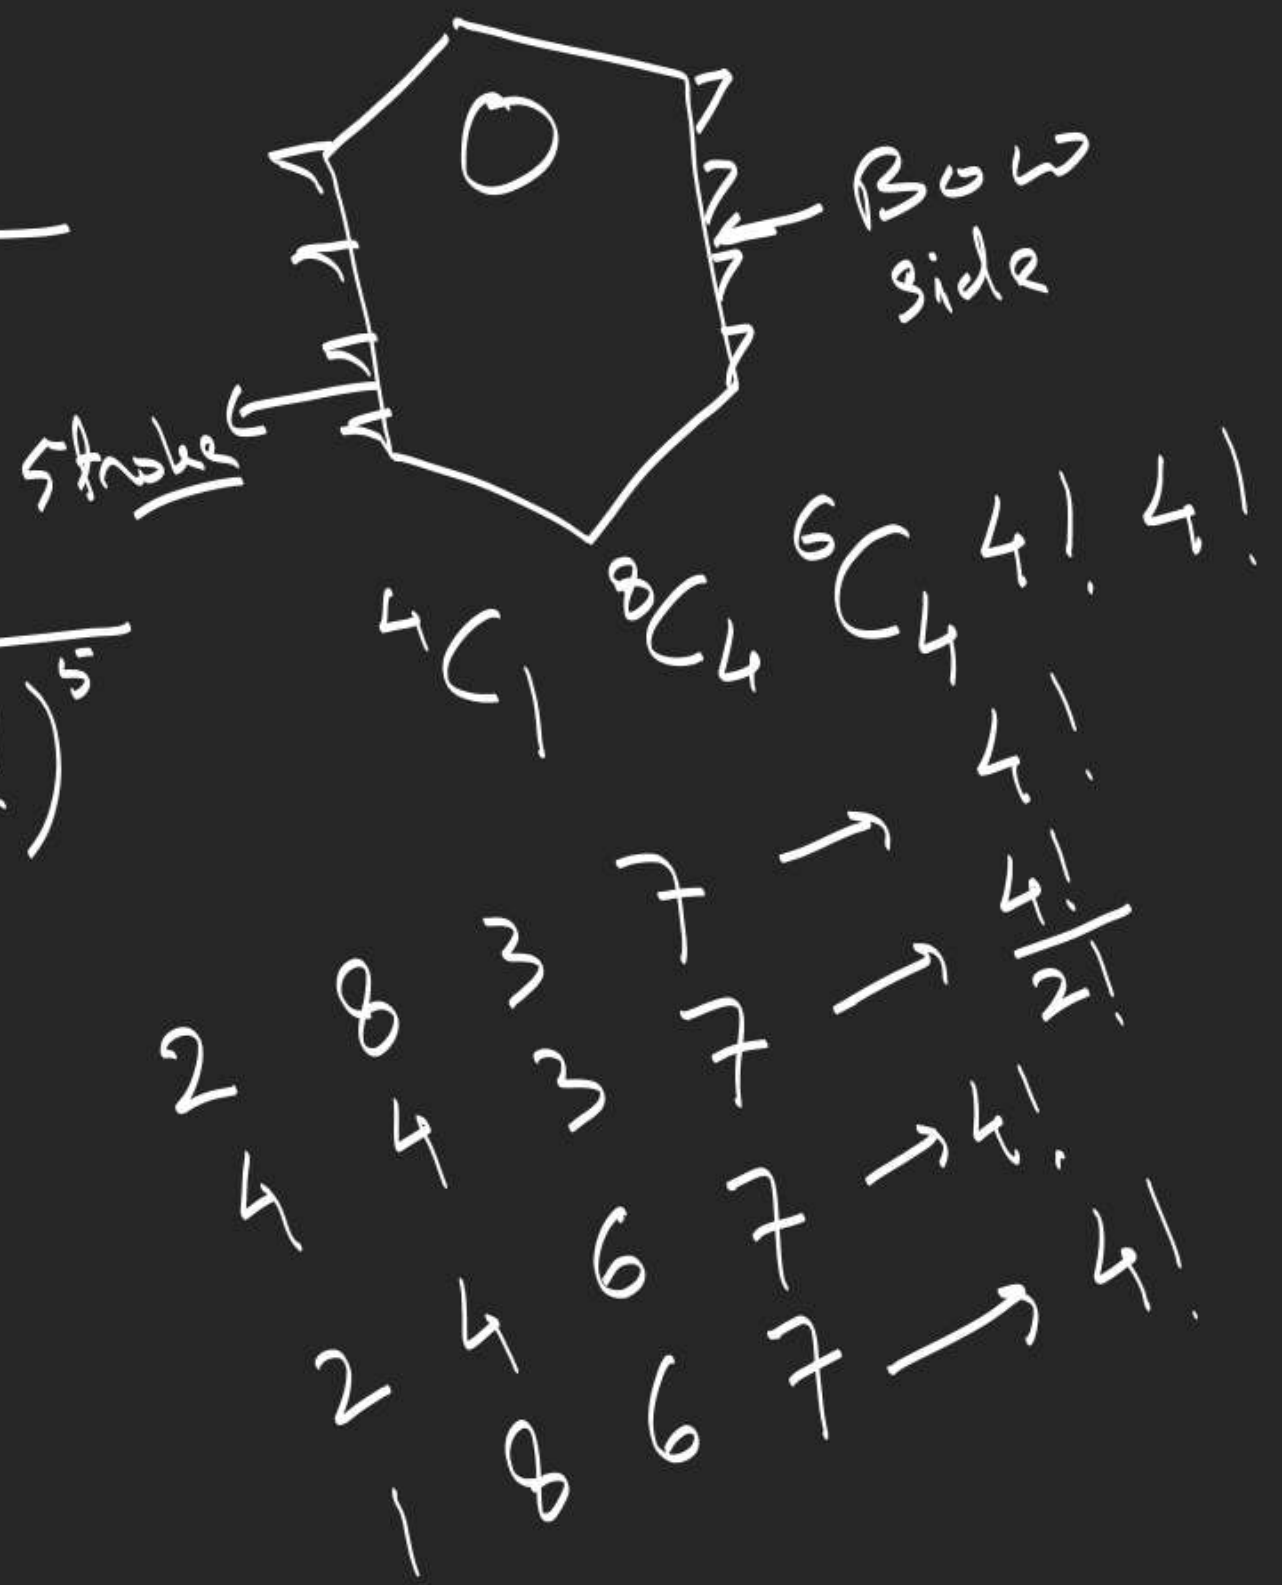 O
Bow
side
Stroke
⁴C₁ ⁸C₄ ⁶C₄ 4! 4!
)⁵
2 8 3 7 → 4!
4 4 3 7 → 4!/2!
2 4 6 7 → 4!
1 8 6 7 → 4!